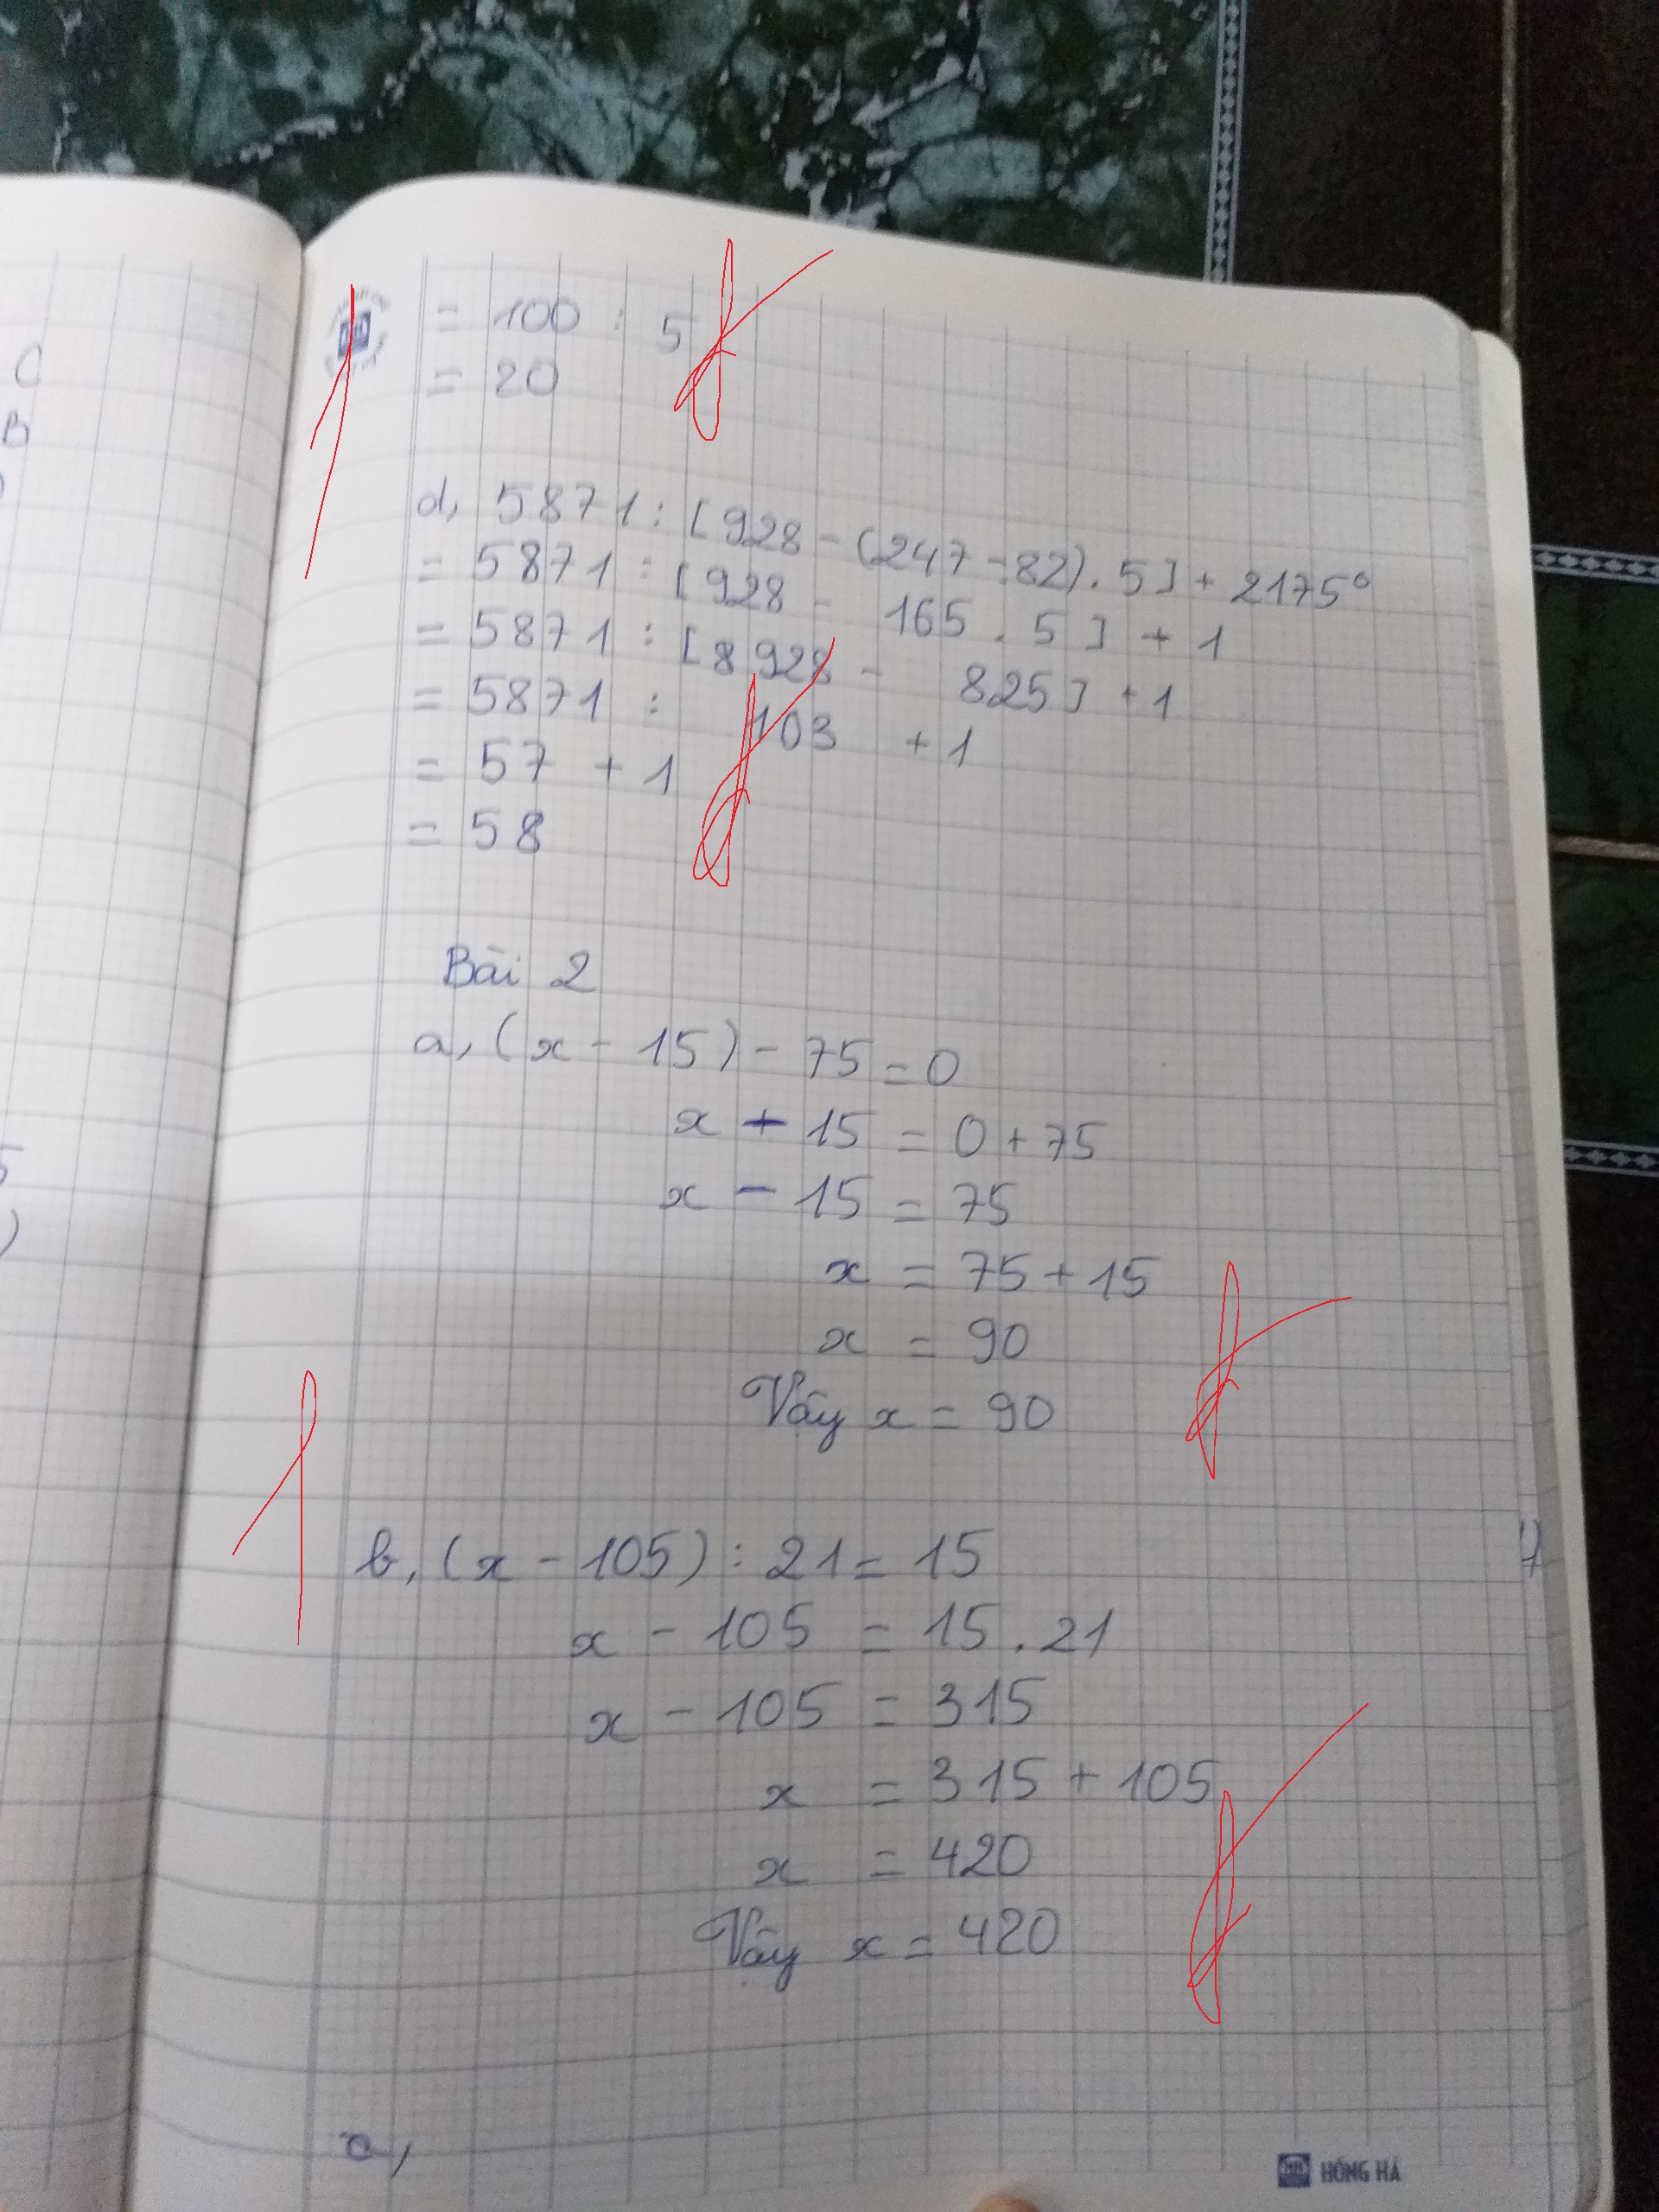 C
B
1
= 100 : 5
= 20
d, 5871 : [928 - (247 - 82) . 5] + 2175⁰
= 5871 : [928 - 165 . 5] + 1
= 5871 : [8 928 - 825] + 1
= 5871 : 103 + 1
= 57 + 1
= 58
Bài 2
a, (x - 15) - 75 = 0
x - 15 = 0 + 75
x - 15 = 75
x = 75 + 15
x = 90
Vậy x = 90
1
b, (x - 105) : 21 = 15
x - 105 = 15 . 21
x - 105 = 315
x = 315 + 105
x = 420
Vậy x = 420
c,
HỒNG HÀ